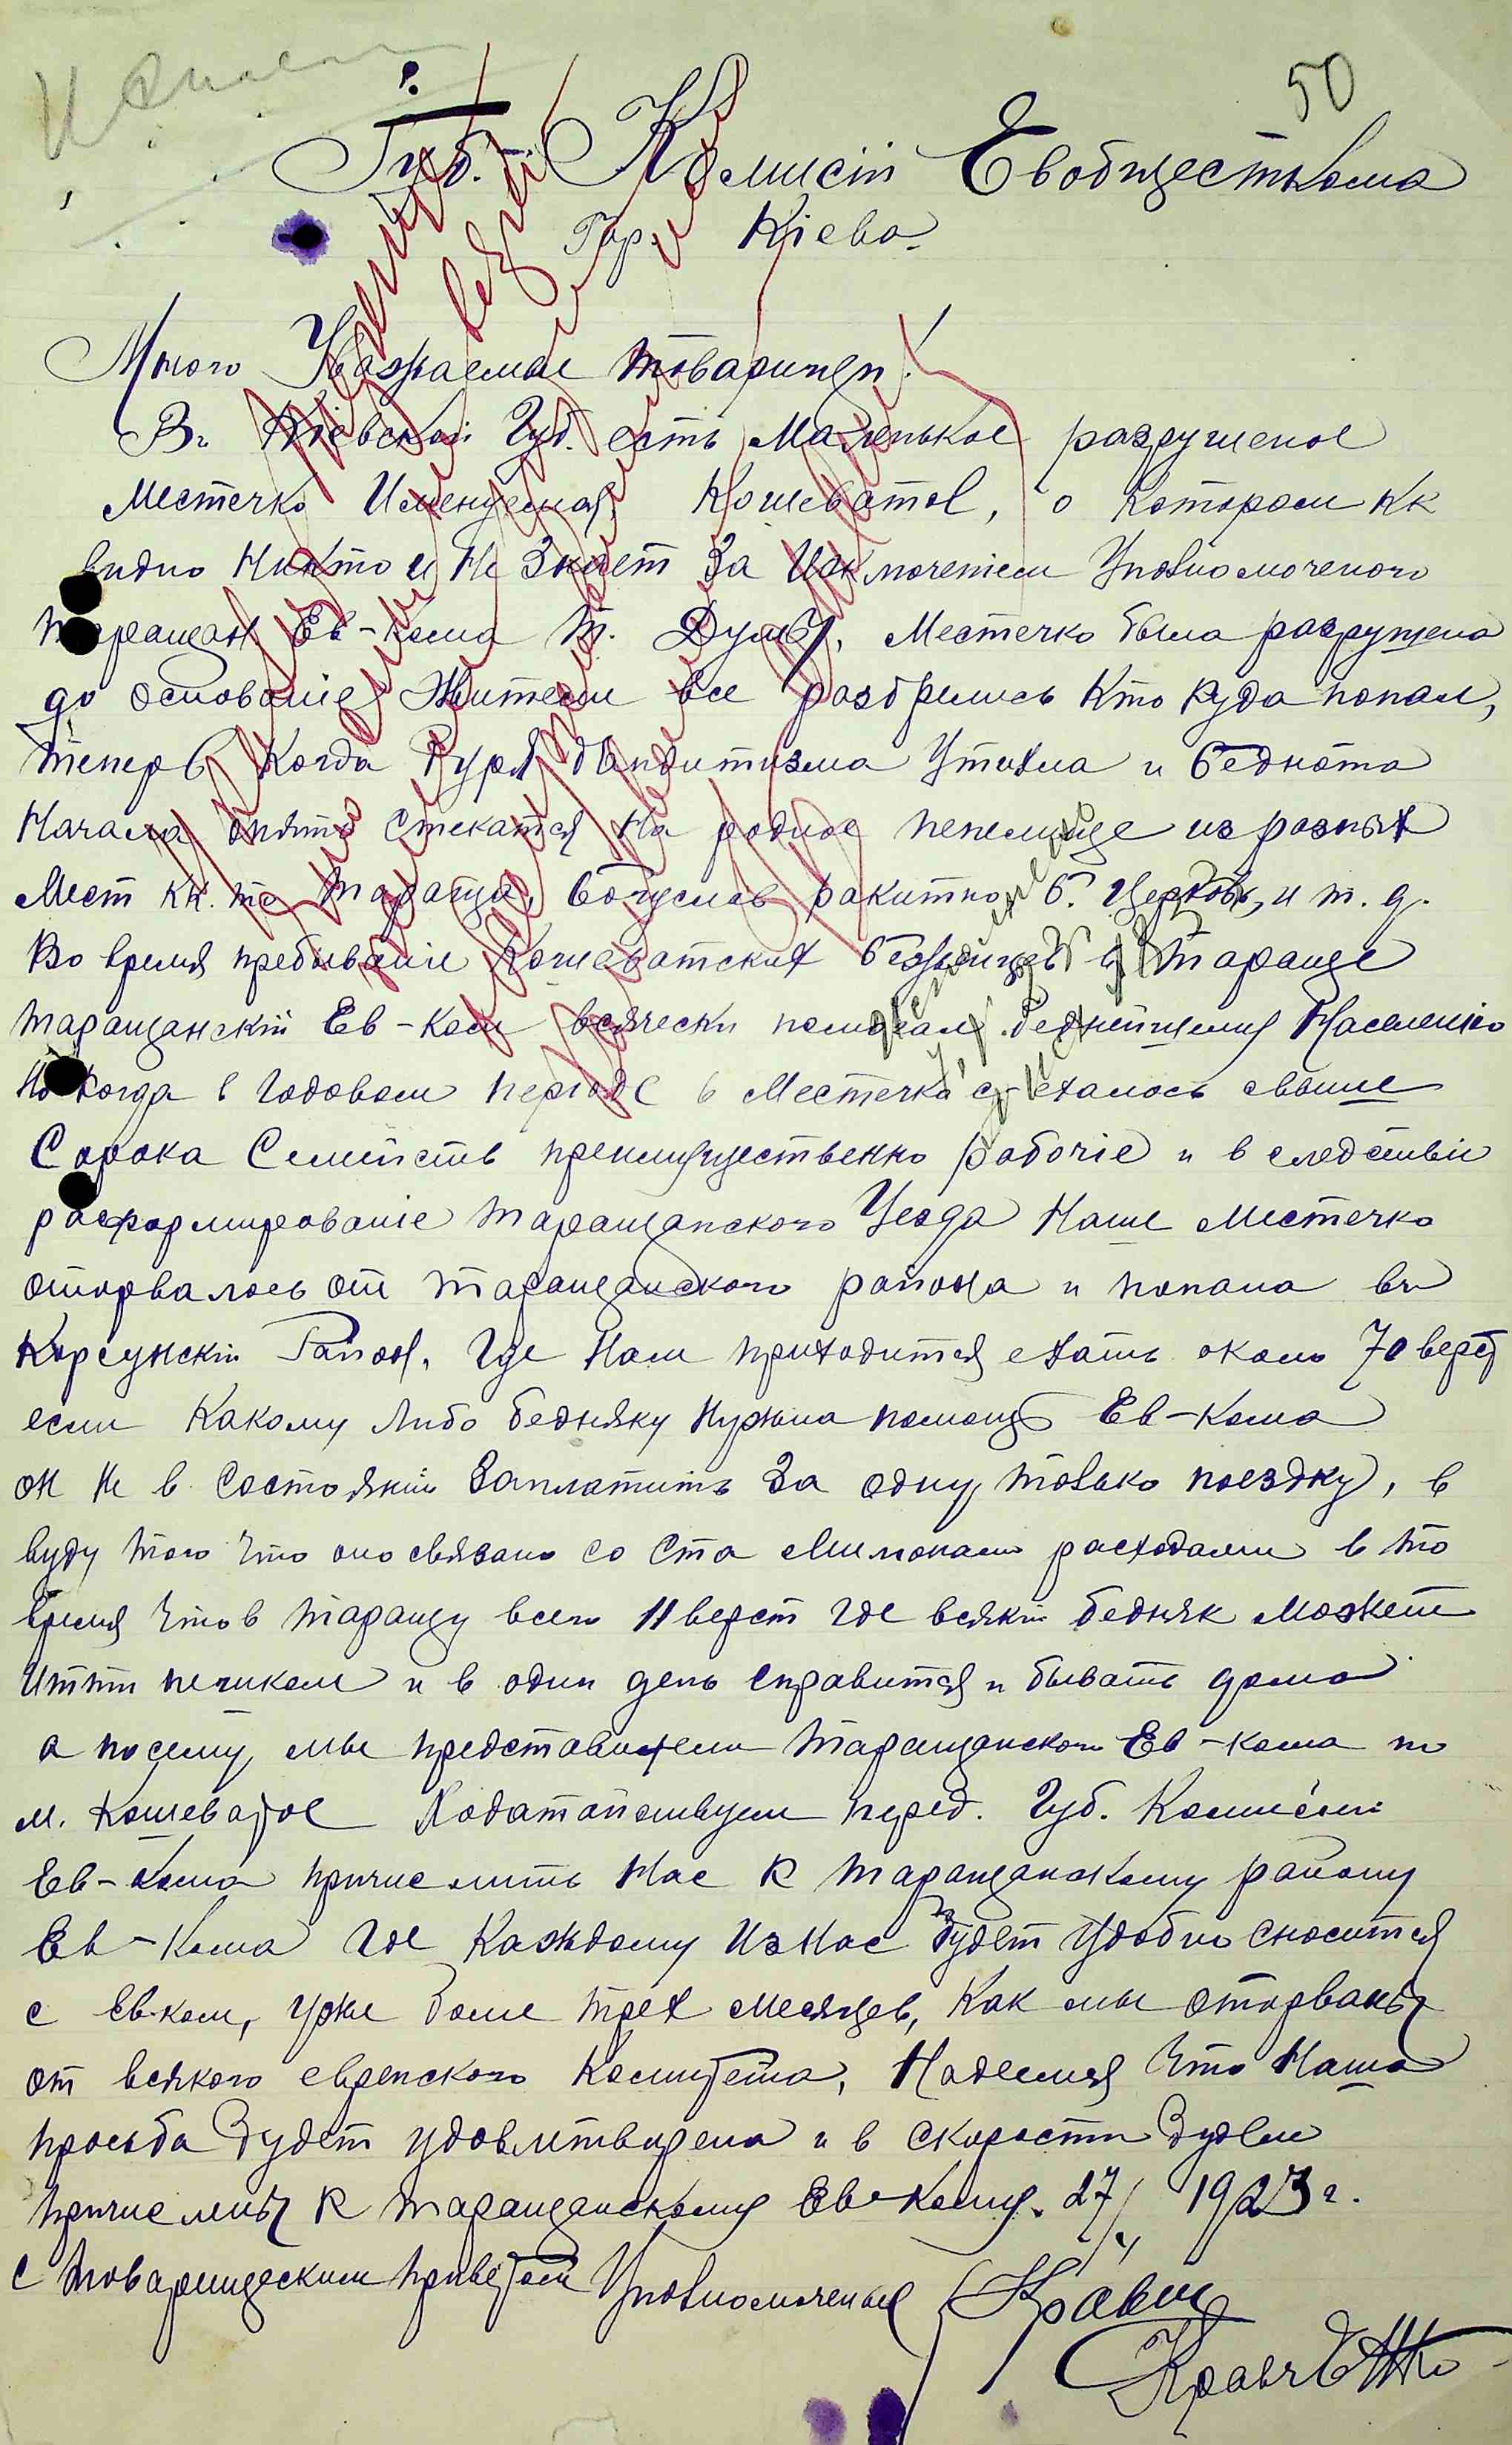 50
Губ. Комисіи Евобщесткома
Гор. Кіева.
Много Уважаемые товарищи!
Въ Кіевской Губ. есть Маленькое разрушеное
местечко Именуемая, Кошеватое, о котором кк
видно никто и не знает За Исключетием Уполномоченого
Таращан Ев-кома т. Думы, Местечко была разрушена
до основаніе Жители все разбрелись кто куда попал,
теперь Когда Буря бандитизма Утихла и беднота
Начала опять стекатся на родное пепелище из разных
Мест кк. то Тараща, Богуслав ракитно, б. Церковь, и т. д.
Во время пребываніе Кошеватских беженцев в Тараще
Таращанскій Ев-ком всячески помогал беднейшему Населенію
Но когда в годовом періоде в Местечка с'ехалось свыше
Сорока Семейств преимущественно рабочіе и в следствіи
расформированіе Таращанского Уезда Наше Местечко
оторвалось от Таращанского района и попала въ
Корсунскій Район, где Нам приходится ехать около 70 верст
если Какому либо бедняку нужна помощь Ев-кома
он не в состояніи Заплатить За одну только поездку, в
виду того что оно связано со ста Милионами расходами в то
время что в Таращу всего 11 верст где всякій бедняк может
Итти пешком и в один день справится и бывать дома
а посему мы представители Таращанского Ев-кома по
м. Кошеватое Ходатайствуем перед. Губ. Комисіей
Ев-кома причислить Нас к Таращанскому району
Ев-Кома где Каждому из Нас будет удобно сносится
с Ев-ком, уже боле трех месяцев, Как мы оторваны
от всякого еврейского комитета, Надеемся что Наша
просьба будет удовлетворена и в скорости будем
причислены к Таращанскому Ев-Кому. 27/V 1923 г.
С товарищеским приветом Уполномоченые Кравец